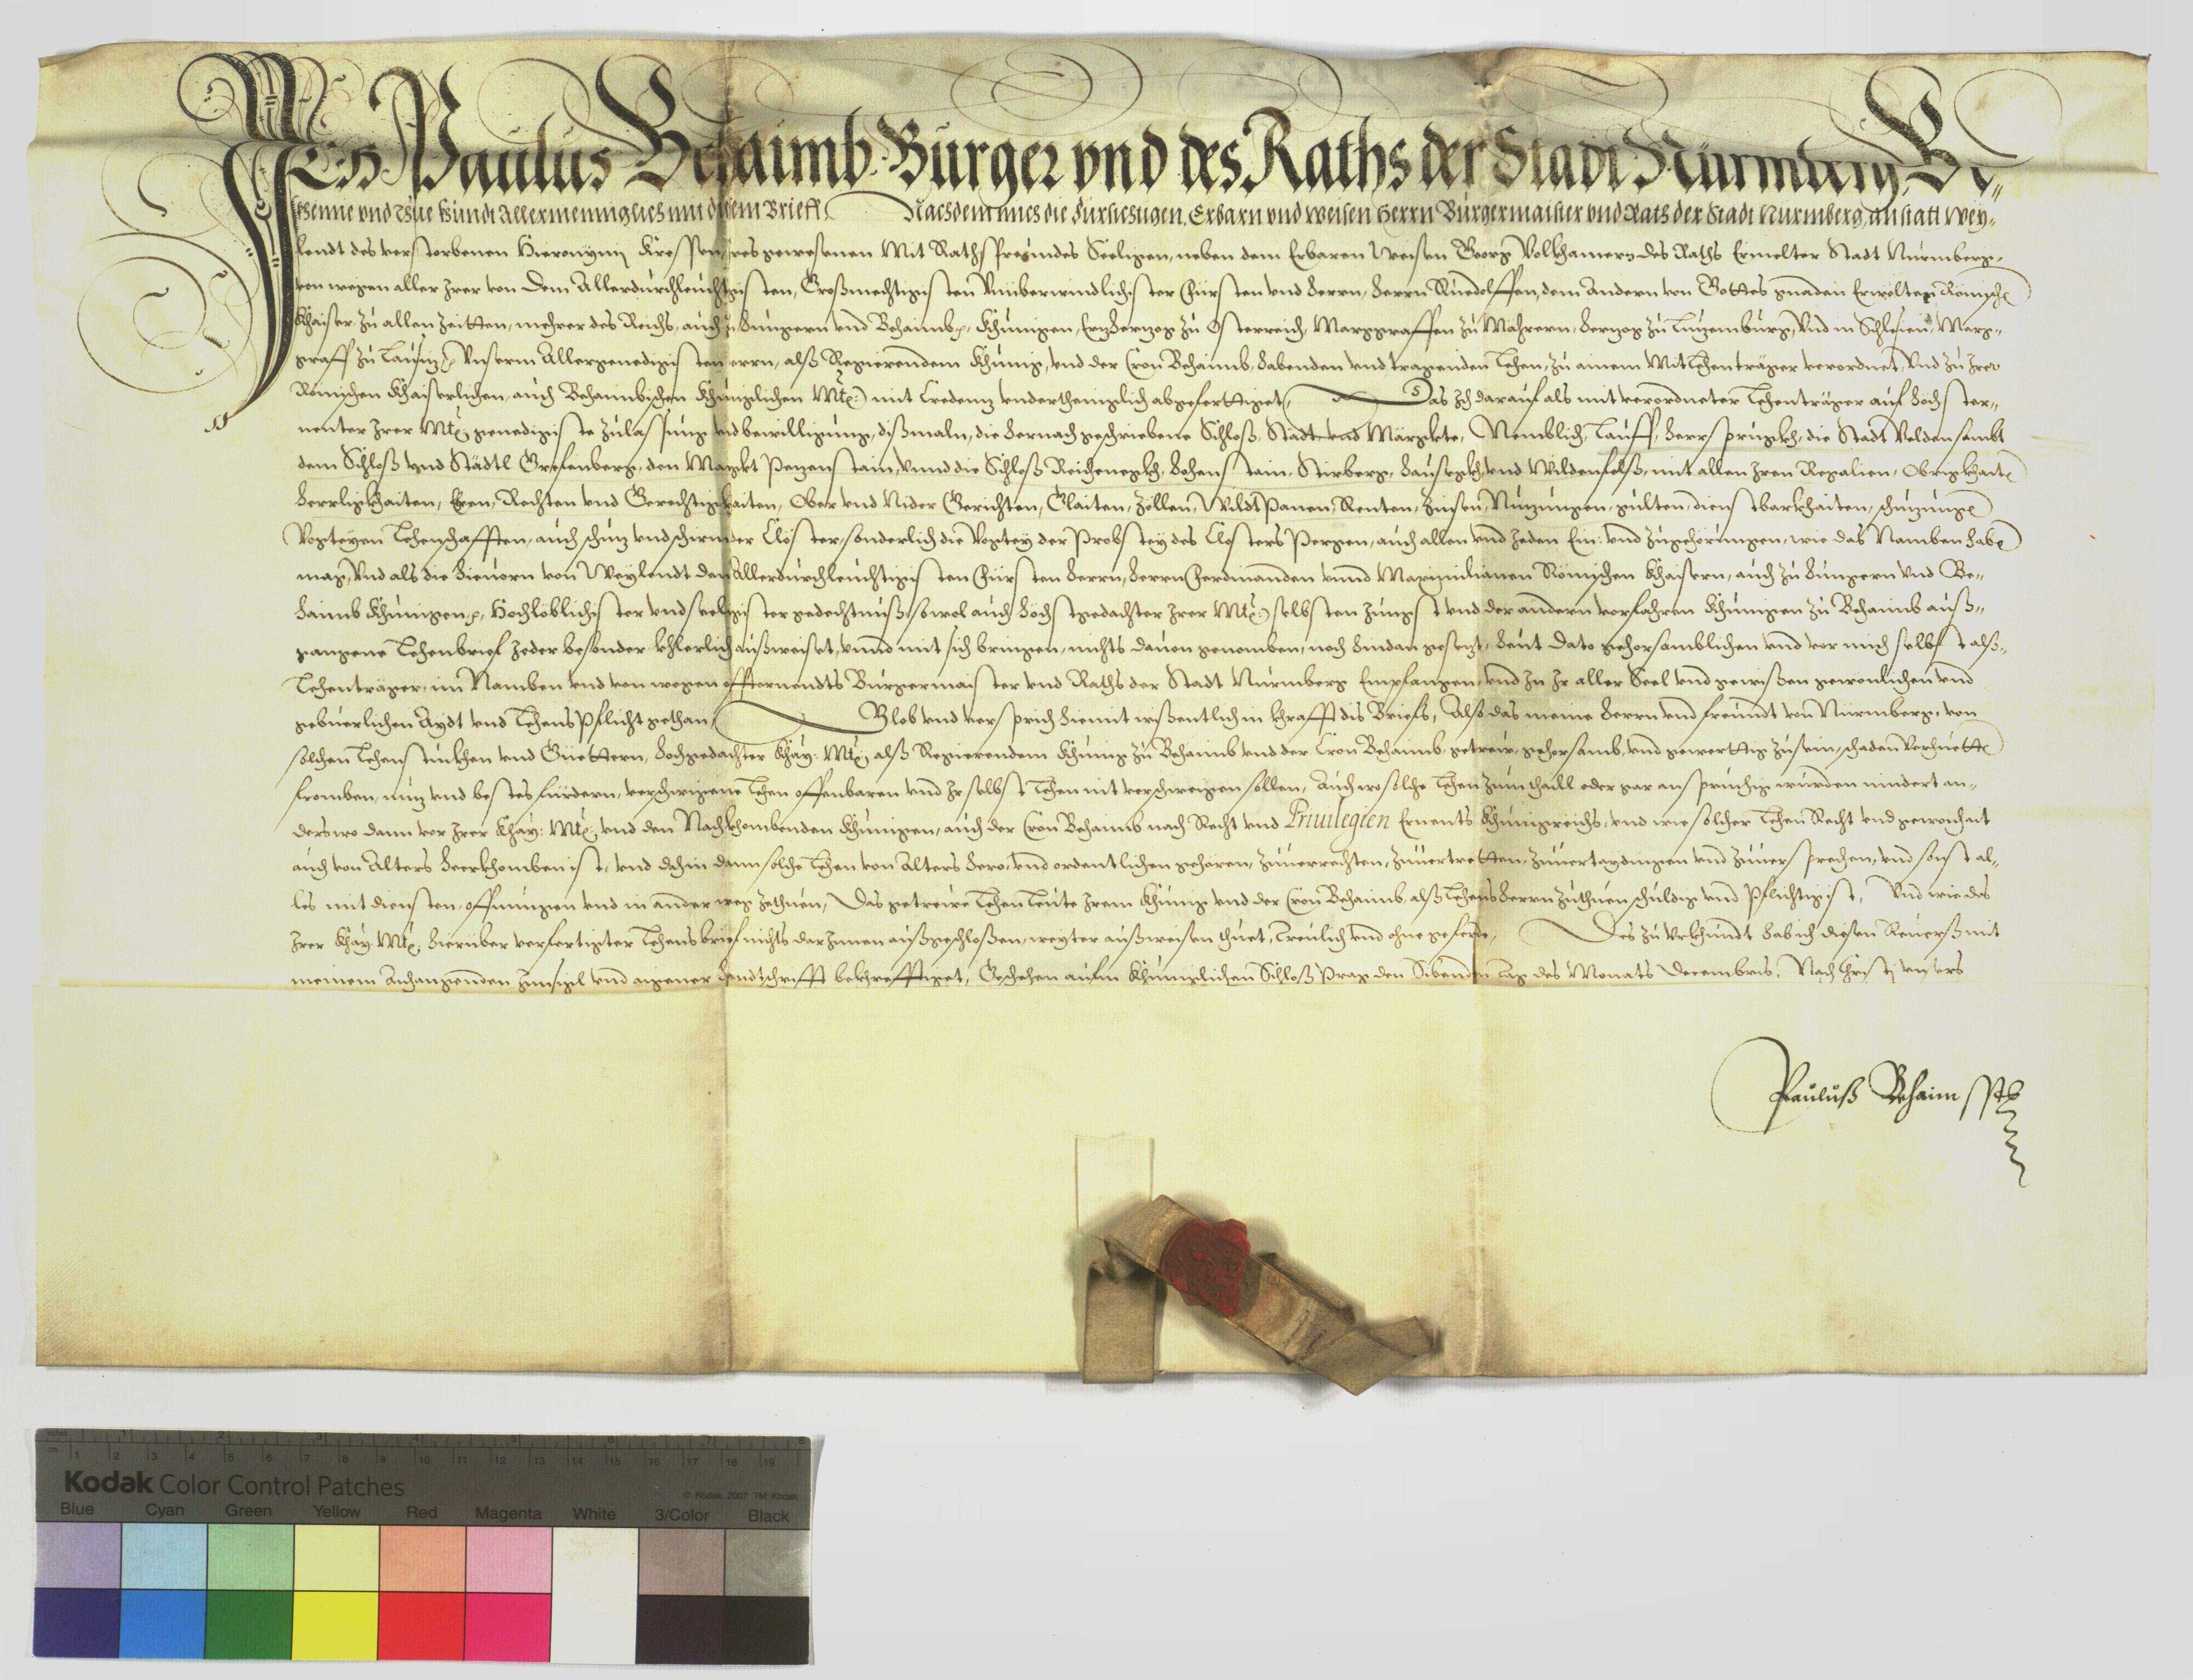 Ich Paulus Behaimb Burger vnd des Raths der Stadt Nürmberg, Be-
khenne vnd Thue kundt Allermenniglich mit disem Brieff, Nachdem mich die Fursichtigen, Erbarn vnd Weisen Herrn Burgermaister vnd Rath der Stadt Nurmberg, an statt Wey-
lendt des verstorbenen Hieronÿmj Kressen, Ires gewesenen Mit Rathsfreündes Seeligen, neben dem Erbaren Weisen Georg Volkhamern des Raths Ermelter Stadt Nürmberg,
von wegen aller Irer von dem Allerdurchleuchtigisten, Großmechtigisten Vnüberwindlichister Fürsten vnd Herrn, Herrn Ruedolffen, dem Andern von Gottes gnaden Erwölten Römische
Khaiser, zu allen Zeitten, mehrer des Reichs, auch zu Hungern vnd Behaimb, Khünigen, Erzherzog zu Österreich, Marggraffen zu Mährern, Herzog zu Luzemburg, Vnd in Schlesien, Marg-
graff zu Lausiz, Vnserm Allergenedigisten Herrn, alß Regierendem Khünig, vnd der Cron Behaimb, habenden vnd tragenden Lehen, zu ainem Mit Lehenträger verordnet, Vnd zu Irer
Römischen Khaiserlichen, auch Behaimbischen Khüniglichen Mt: mit Credenz vnderthenigklich abgeferttiget, Das Ich darauf als mit verordneter Lehenträger auf höchster-
nenter Irer Mt: genedigiste zulassung vnd bewilligung, dißmaln, die hernachgeschriebene Schloß, Stadt vnd Märgkte, Nemblich, Lauff, Herrsprugkh, die Stadt Velden sambt
dem Schloß vnd Städtl Grefenberg, den Margkt Pezenstain, vnnd die Schloß Reichenegkh, Hohenstain, Stirberg, Hausegkh, vnd Wildenfelß, mit allen Iren Regalien, Obrigkhaite
Herrligkhaiten, Eren, Rechten vnd Gerechtigkhaiten, Ober vnd Nider Gerichten, Glaiten, Zöllen, Wildt Panen, Renten, Zinsen, Nuzungen, gülten, dienstbarkhaiten, schuzunge
Vogteyen Lehenschafften, auch schuz vnd schirm der Clöster, sonderlich die Vogtey der Probstey des Closters Pergen, auch allen vnd Jeden Ein: vnd Zugehörungen, wie das Namben habe
mag, Vnd als die hieuorn von Weylendt den Allerdurchleuchtigisten Fürsten Herrn, Herrn Ferdinanden vnnd Maximilianen Römischen Khaisern, auch zu Hungern vnd Be-
haimb Khünigen, Hochlöblichister vnd seeligister gedechtnuß, sowol auch höchstgedachter Irer Mt: selbsten Jungst vnd der andern vorfahren Khünigen zu Behaimb auß-
gangene Lehenbrief Jeder besonder khlerlich außweiset, vnnd mit sich bringen, nichts dauon genomben, noch hindan gesezt, heut Dato gehorsamblichen vnd vor mich selbst alß
Lehenträger, im Namben vnd von wegen offternendts Burgermaister vnd Raths der Stadt Nürmberg Empfangen, vnd In Ir aller Seel vnd gewißen gewonlichen vnd
gebuerlichen Aydt vnd Lehens Pflicht gethan, Glob vnd versprich hiemit wißentlich in khrafft dis Briefs, Alß das meine Herrn vnd freundt von Nürmberg, von
solchen Lehenstuckhen vnd Güettern, hochgedachter Khay: Mt: alß Regierendem Khünig zu Behaimb vnd der Cron Behaimb, getreue, gehorsamb, vnd gewerttig zu sein, schaden Verhuette
fromben, nuz vnd bestes fürdern, verschwigene Lehen offenbaren vnd Ir selbst Lehen nit verschweigen sollen, Auch wo solche Lehen zum thaill oder gar ansprüchig wurden nindert an-
derswo dann vor Irer Khay: Mt: vnd den Nachkhombenden Khünigen, auch der Cron Behaimb nach Recht vnd Priuilegien Ernents Khünigreichs, vnd wie solcher Lehen Recht vnd gewonhait
auch von Alters heerkhomben ist, vnd dahin dann solche Lehen von Alters hero, vnd ordentlichen gehören, zuuerrechten, zuuertretten, zuuertaydingen vnd zuuersprechen, vnd sonst al-
les mit diensten, offnungen vnd in ander weg zethuen, Das getreüe Lehenleüte Irem Khünig vnd der Cron Behaimb, alß Lehensherrn zuthuen schuldig vnd Pflichtig ist, Vnd wie das
Irer Khay: Mt: hierüber verfertigter Lehensbrief nichts dar Innen außgeschloßen, weyter außweisen thuet, treulich vnd ohne geferde, Des zu Vrkhundt hab ich diesen Reuerß mit
meinem Anhangenden Innsigl vnd aigener Handtschrifft bekhrefftiget, Geschehen aufm Khüniglichen Schloß Prag den Sibenden Tag des Monats Decembris, Nach Christj vnsers
Pauluß Behaim
Kodak Color Control Patches
© Kodak, 2007 TM: Kodak
Blue Cyan Green Yellow Red Magenta White 3/Color Black